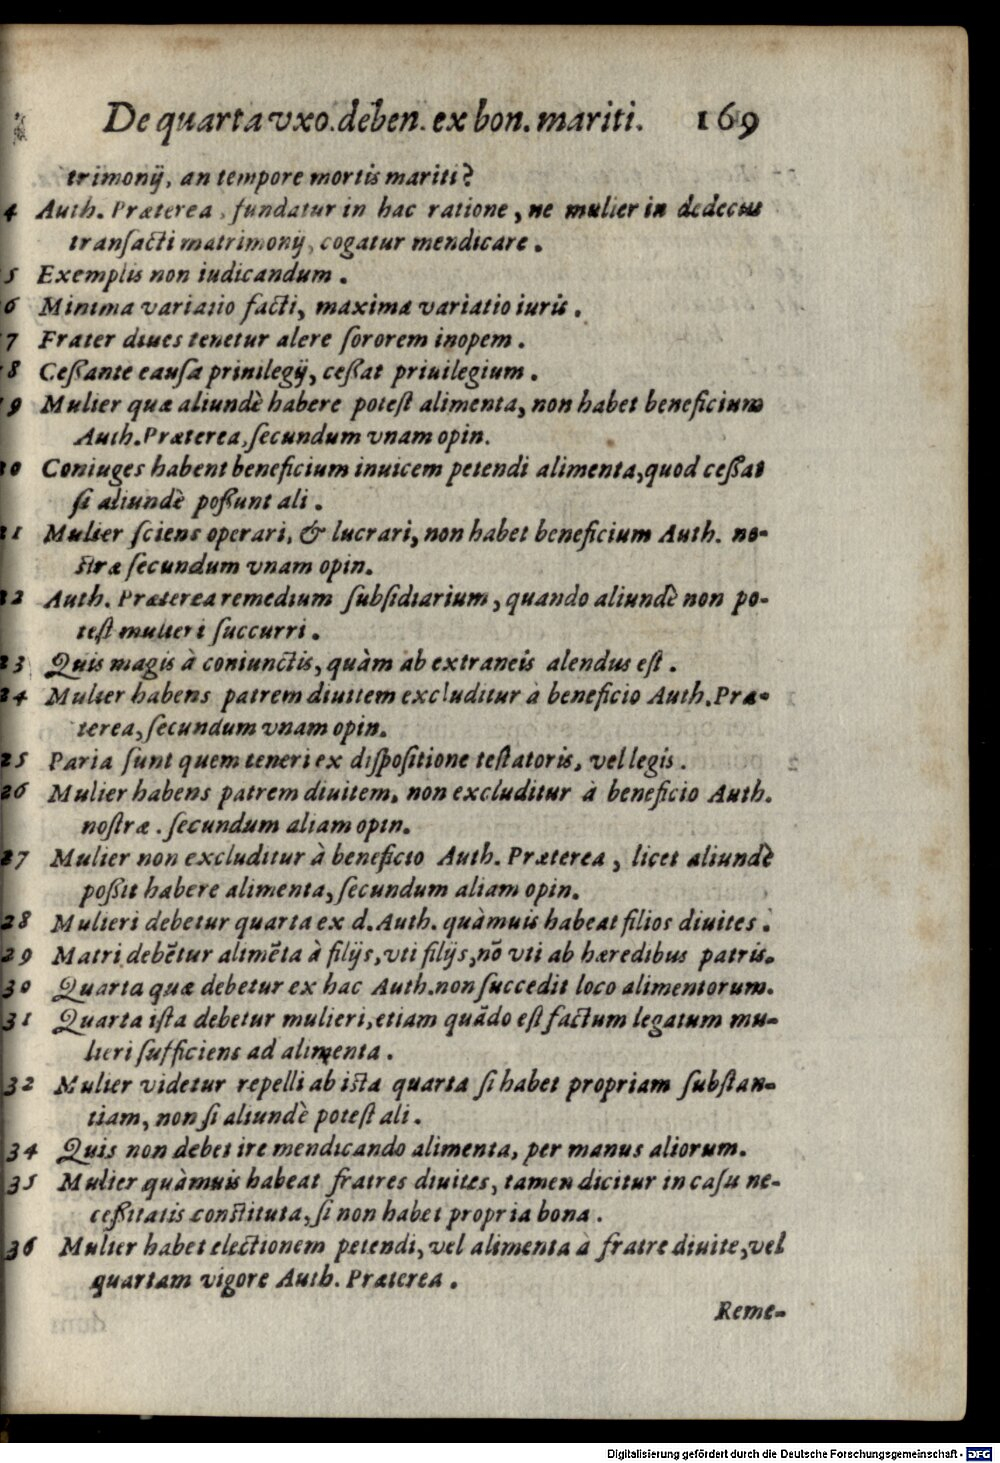 De quarta vxo. deben. ex bon. mariti. 169
trimonij, an tempore mortis mariti?
4 Auth. Præterea, fundatur in hac ratione, ne mulier in dedecus
transacti matrimonij, cogatur mendicare.
5 Exemplis non iudicandum.
6 Minima variatio facti, maxima variatio iuris.
7 Frater diues tenetur alere sororem inopem.
8 Ceßante causa priuilegij, ceßat priuilegium.
9 Mulier quæ aliundè habere potest alimenta, non habet beneficium
Auth. Præterea, secundum vnam opin.
20 Coniuges habent beneficium inuicem petendi alimenta, quod ceßat
si aliundè poßunt ali.
21 Mulier sciens operari, & lucrari, non habet beneficium Auth. no-
stræ secundum vnam opin.
22 Auth. Præterea remedium subsidiarium, quando aliundè non po-
test mulieri succurri.
23 Quis magis à coniunctis, quàm ab extraneis alendus est.
24 Mulier habens patrem diuitem excluditur à beneficio Auth. Præ-
terea, secundum vnam opin.
25 Paria sunt quem teneri ex dispositione testatoris, vel legis.
26 Mulier habens patrem diuitem, non excluditur à beneficio Auth.
nostræ. secundum aliam opin.
27 Mulier non excluditur à beneficio Auth. Præterea, licet aliundè
poßit habere alimenta, secundum aliam opin.
28 Mulieri debetur quarta ex d. Auth. quàmuis habeat filios diuites.
29 Matri debẽtur alimẽta à filijs, vti filijs, nõ vti ab hæredibus patris.
30 Quarta quæ debetur ex hac Auth. non succedit loco alimentorum.
31 Quarta ista debetur mulieri, etiam quãdo est factum legatum mu-
lieri sufficiens ad alimenta.
32 Mulier videtur repelli ab ista quarta si habet propriam substan-
tiam, non si aliundè potest ali.
34 Quis non debet ire mendicando alimenta, per manus aliorum.
35 Mulier quàmuis habeat fratres diuites, tamen dicitur in casu ne-
ceßitatis constituta, si non habet propria bona.
36 Mulier habet electionem petendi, vel alimenta à fratre diuite, vel
quartam vigore Auth. Præterea.
Reme-
Digitalisierung gefördert durch die Deutsche Forschungsgemeinschaft - DFG